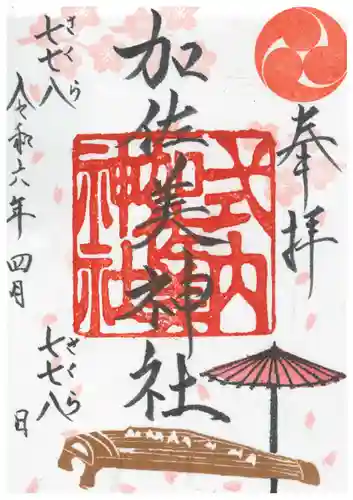 奉拝
加佐美神社
式内加佐美神社
さくら
七七八
令和六年四月
さくら
七七八
日